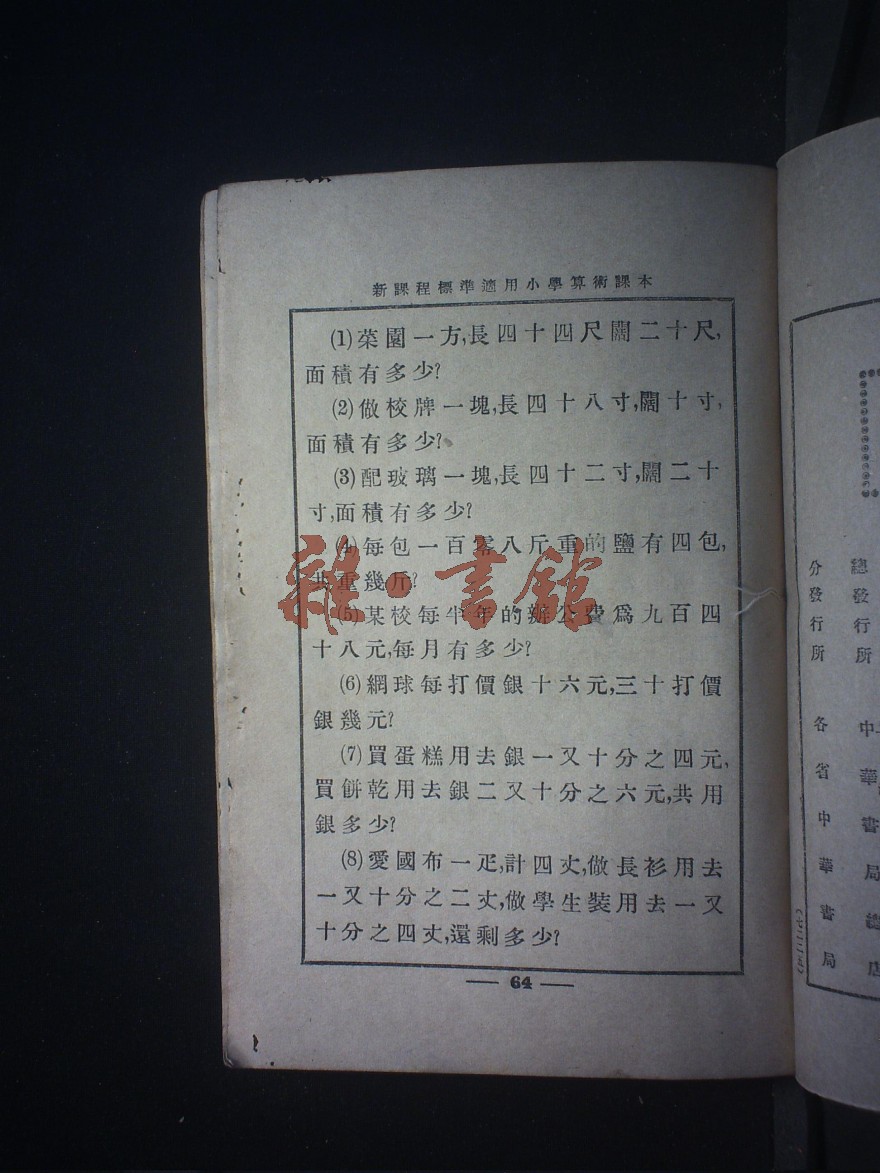 新課程標準適用小學算術課本
(1)菜園一方,長四十四尺闊二十尺,
面積有多少?
(2)做校牌一塊,長四十八寸,闊十寸,
面積有多少?
(3)配玻璃一塊,長四十二寸,闊二十
寸,面積有多少?
(4)每包一百零八斤重的鹽有四包,
共重幾斤?
(5)某校每半年的辦公費爲九百四
十八元,每月有多少?
(6)網球每打價銀十六元,三十打價
銀幾元?
(7)買蛋糕用去銀一又十分之四元,
買餅乾用去銀二又十分之六元,共用
銀多少?
(8)愛國布一疋,計四丈,做長衫用去
一又十分之二丈,做學生裝用去一又
十分之四丈,還剩多少?
— 64 —
雜·書館
總發行所
分發行所 各省中華書局